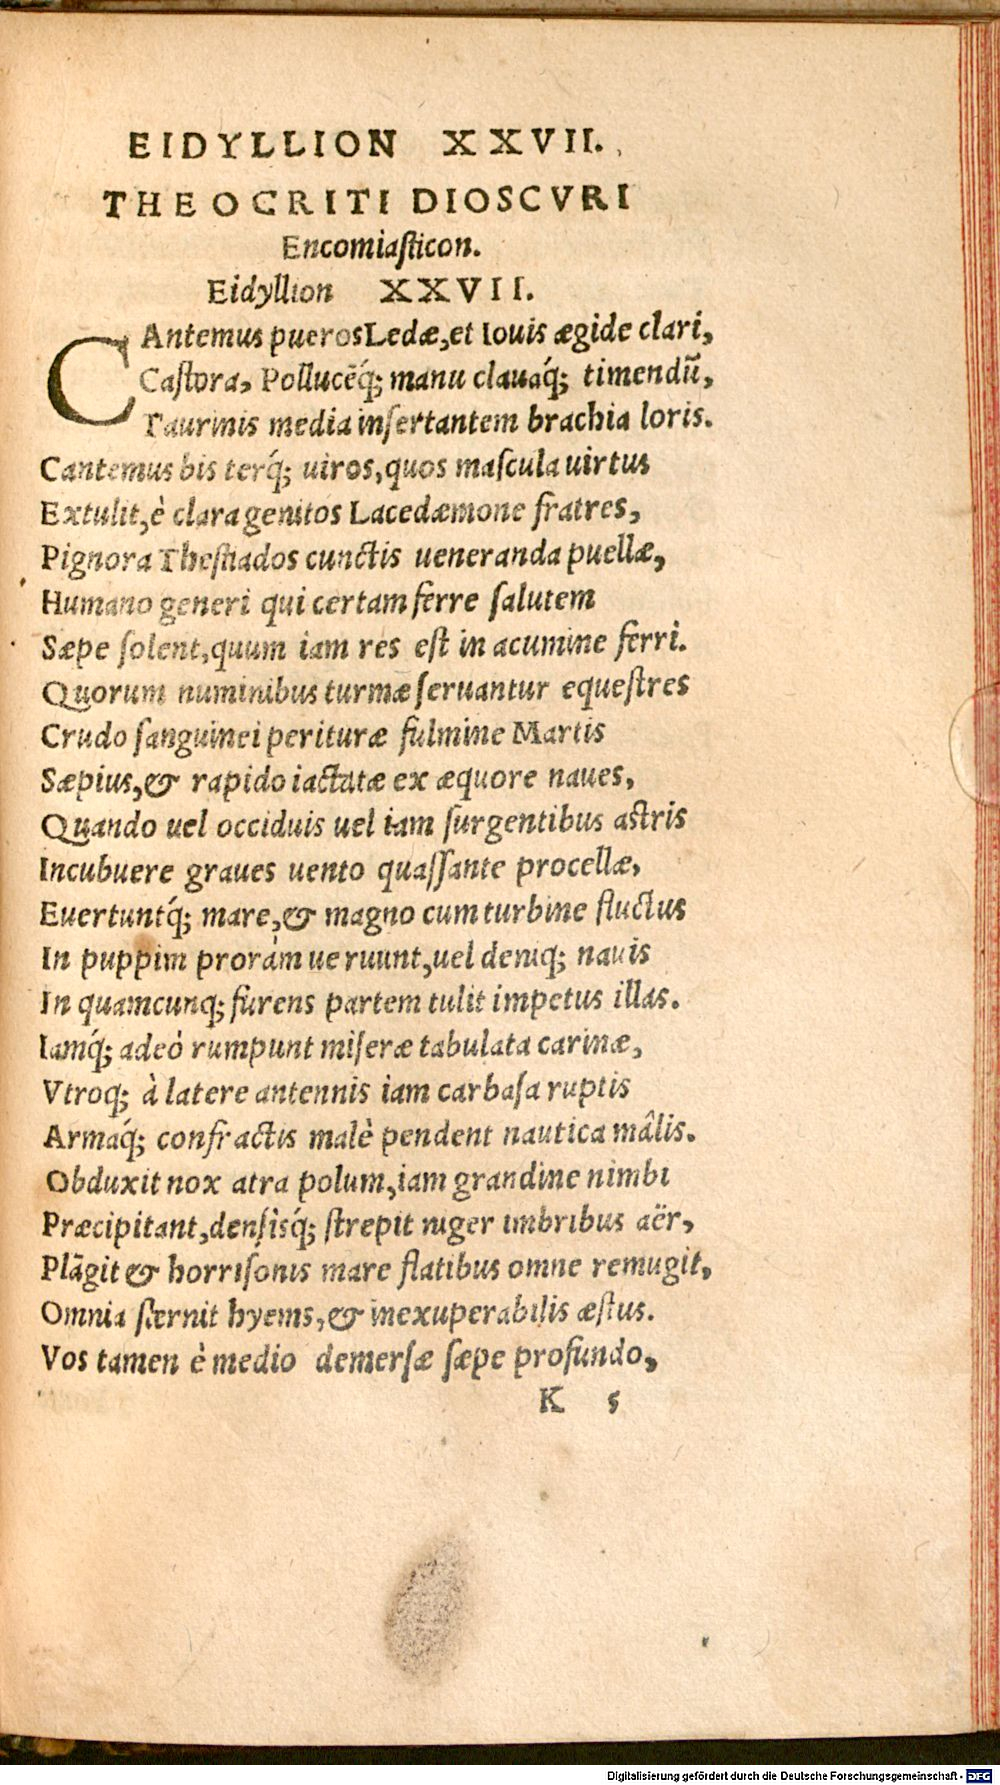 EIDYLLION XXVII.
THEOCRITI DIOSCVRI
Encomiasticon.
Eidyllion XXVII.
CAntemus pueros Ledæ, et Iouis ægide clari,
Castora, Pollucẽq́; manu clauaq́; timendũ,
Taurinis media insertantem brachia loris.
Cantemus bis terq́; uiros, quos mascula uirtus
Extulit, è clara genitos Lacedæmone fratres,
Pignora Thestiados cunctis ueneranda puellæ,
Humano generi qui certam ferre salutem
Sæpe solent, quum iam res est in acumine ferri.
Quorum numinibus turmæ seruantur equestres
Crudo sanguinei perituræ fulmine Martis
Sæpius, & rapido iactatæ ex æquore naues,
Quando uel occiduis uel iam surgentibus astris
Incubuere graues uento quassante procellæ,
Euertuntq́; mare, & magno cum turbine fluctus
In puppim proràm ue ruunt, uel deniq; nauis
In quamcunq; furens partem tulit impetus illas.
Iamq́; adeò rumpunt miseræ tabulata carinæ,
Vtroq; à latere antennis iam carbasa ruptis
Armaq́; confractis malè pendent nautica mâlis.
Obduxit nox atra polum, iam grandine nimbi
Præcipitant, densisq́; strepit niger imbribus aër,
Plãgit & horrisonis mare flatibus omne remugit,
Omnia sternit hyems, & inexuperabilis æstus.
Vos tamen è medio demersæ sæpe profundo,
K 5
Digitalisierung gefördert durch die Deutsche Forschungsgemeinschaft - DFG